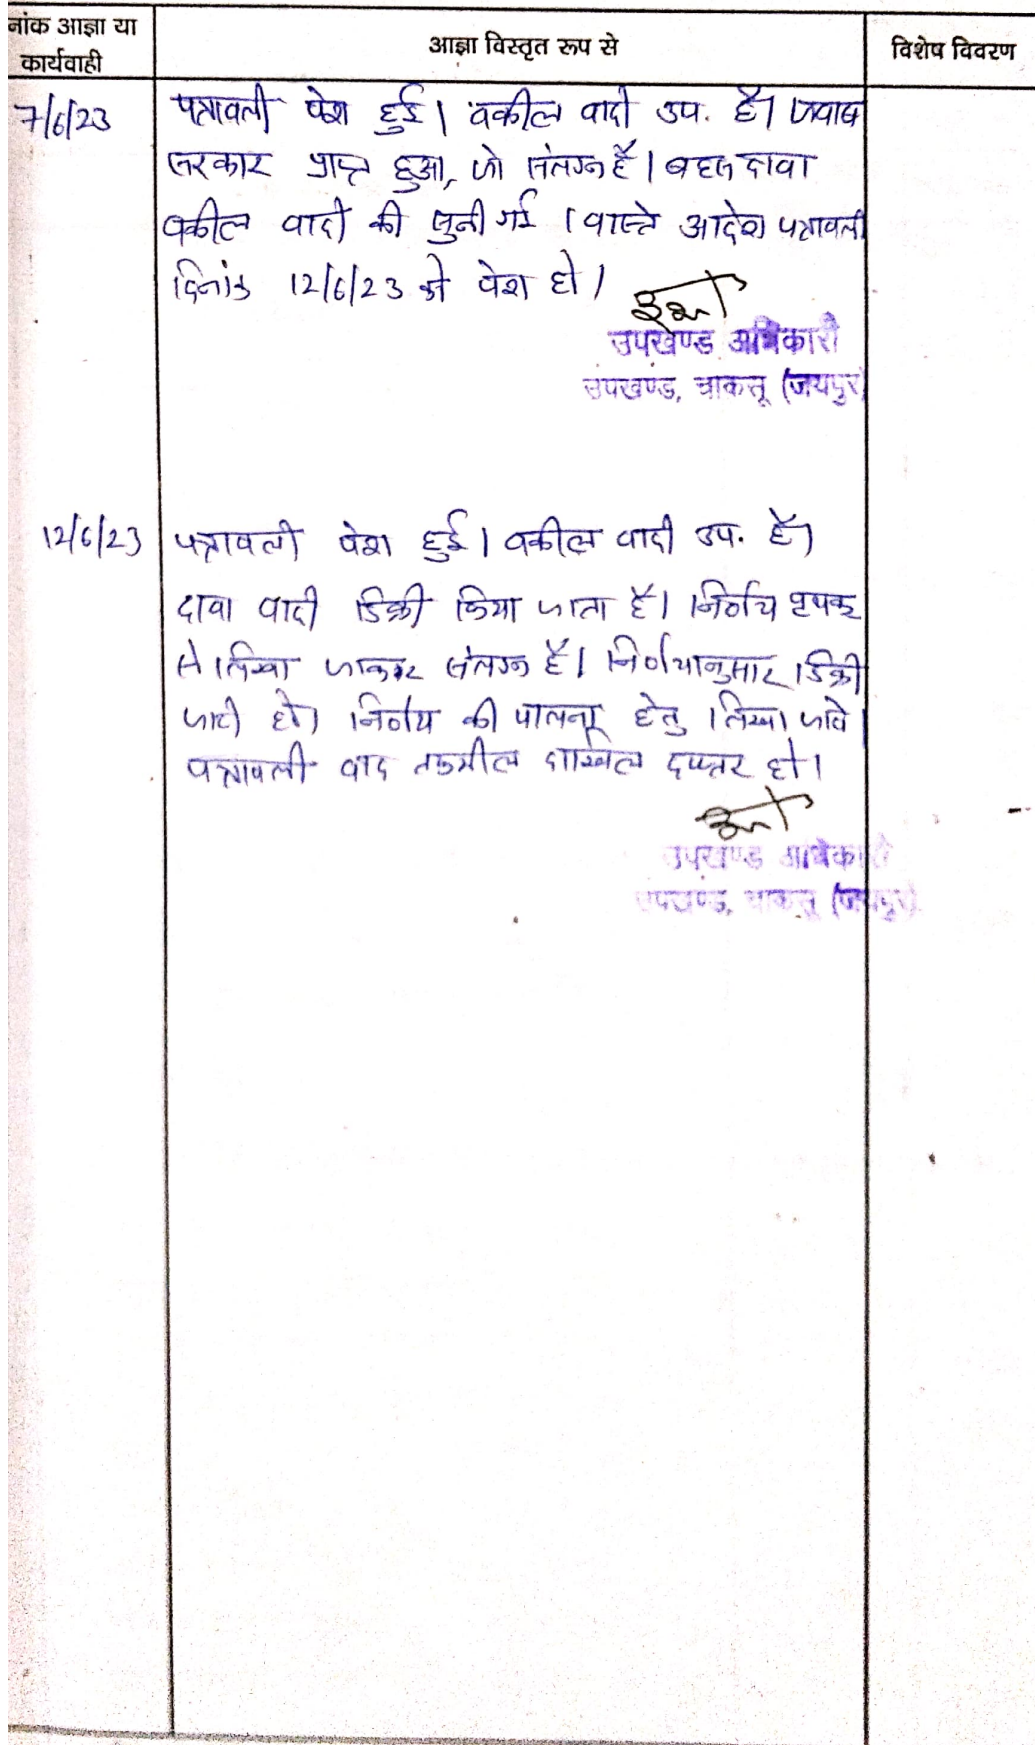 नांक आज्ञा या
कार्यवाही
आज्ञा विस्तृत रूप से
विशेष विवरण
7/6/23
पत्रावली पेश हुई। वकील वादी उप. है। जवाब
सरकार प्राप्त हुआ, जो संलग्न है। बहस दावा
वकील वादी की सुनी गई। वास्ते आदेश पत्रावली
दिनांक 12/6/23 को पेश हो।
उपखण्ड अधिकारी
उपखण्ड, चाकसू (जयपुर)
12/6/23
पत्रावली पेश हुई। वकील वादी उप. है।
दावा वादी डिक्री किया जाता है। निर्णय पृथक
से लिखा जाकर संलग्न है। निर्णयानुसार डिक्री
जारी हो। निर्णय की पालना हेतु लिखा जावे।
पत्रावली बाद तकमील दाखिल दफ्तर हो।
उपखण्ड अधिकारी
उपखण्ड, चाकसू (जयपुर)